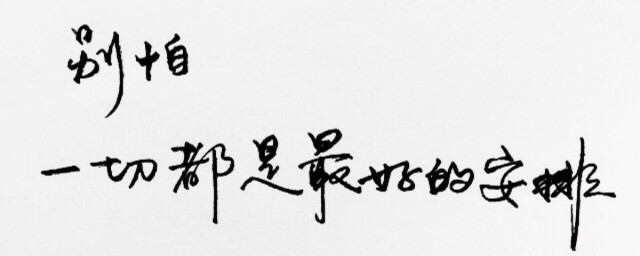 别怕
一切都是最好的安排